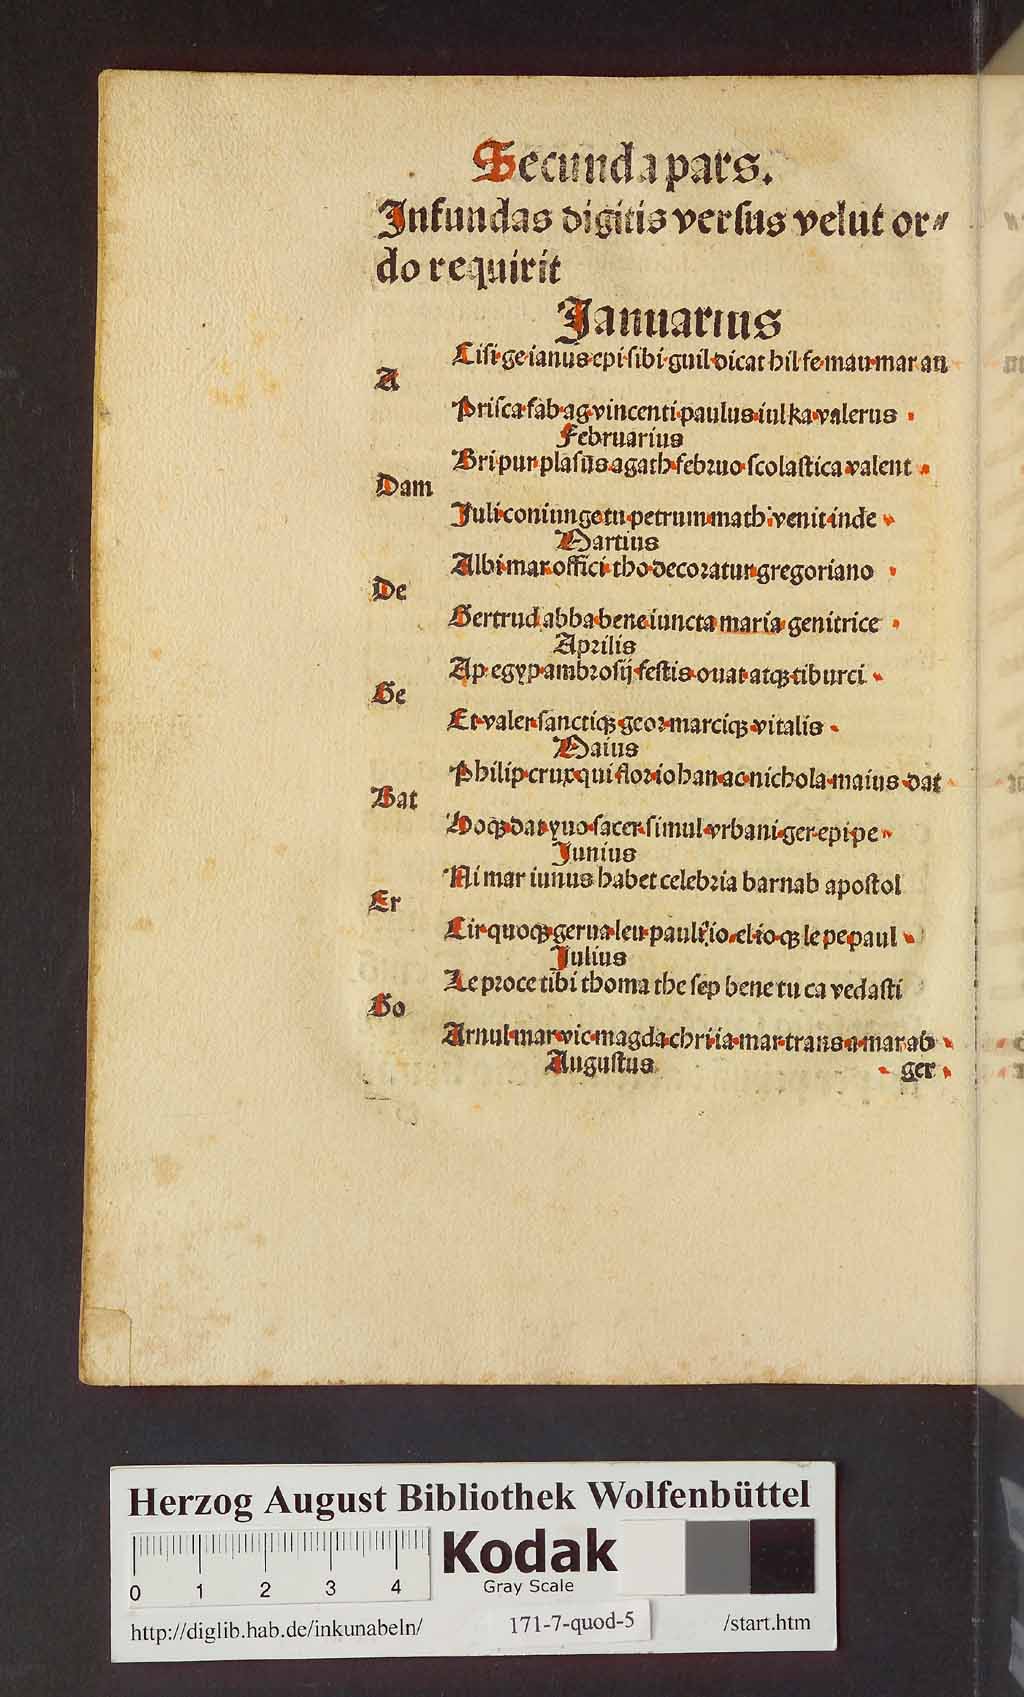 Secunda pars.
Infundas digitis versus velut or⸗
do requirit
Januarius
Cisi·ge·ianus·epi·sibi·guil·dicat hil·fe·mau·mar an
A
Prisca·fab·ag·vincenti·paulus·iul ka·valerus ·
Februarius
Bri·pur·plasus·agath·februo·scolastica·valent ·
Dam
Juli·coniunge·tu·petrum·math·venit·inde ·
Martius
Albi·mar·offici·tho·decoratur·gregoriano ·
De
Gertrud·abba·bene·iuncta·maria·genitrice ·
Aprilis
Ap·egyp·ambrosij·festis·ouat·atqꝫ·tiburci ·
Ge
Et·valer·sanctiqꝫ·geor·marciqꝫ·vitalis ·
Maius
Philip·crux·qui·flor·iohan·ac·nichola·maius·dat
Bat
Hoqꝫ·dat·yuo·sacer·simul·vrbani·ger·epi·pe·
Junius
Ni mar iunus habet celebria barnab apostol
Er
Cir·quoqꝫ·gerua·leu·paul·io·el·io·qꝫ le pe·paul ·
Julius
Le proce tibi thoma the sep bene tu ca vedasti
Go
Arnul·mar·vic·magda·chri·ia·mar·trans·a·mar ab ·
Augustus · ger ·
Herzog August Bibliothek Wolfenbüttel
0 1 2 3 4
Kodak
Gray Scale
http://diglib.hab.de/inkunabeln/ 171-7-quod-5 /start.htm